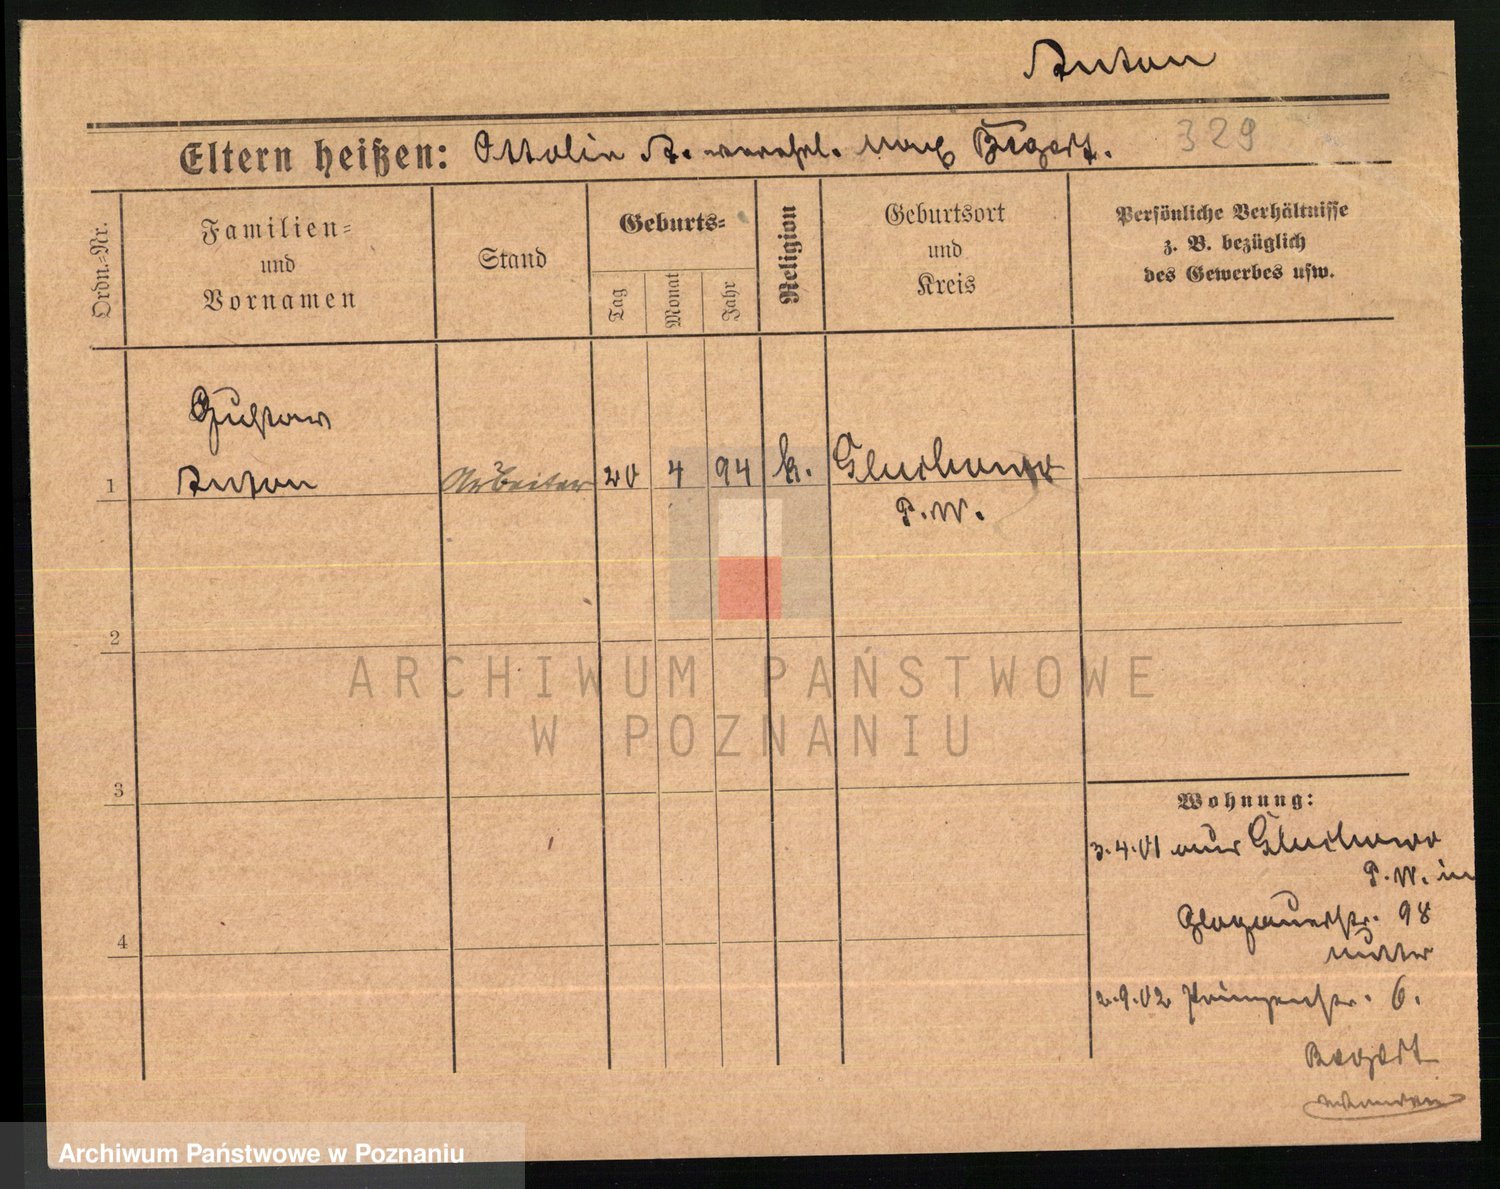 Anton
329
Eltern heißen: Ottolin A. verehl. Bogort.
Ordn.-Nr.
Familien- und Vornamen
Stand
Geburts-
Tag
Monat
Jahr
Religion
Geburtsort und Kreis
Persönliche Verhältnisse z. B. bezüglich des Gewerbes usw.
Gustav
1 Anton Arbeiter 20 4 94 k. Gluchowo
P. W.
2
ARCHIWUM PAŃSTWOWE
W POZNANIU
3
Wohnung:
3.4.01 aus Gluchowo
P. W. in
Glogauerstr. 98
Mutter
4
2.9.02 Prinzenstr. 6.
Archiwum Państwowe w Poznaniu